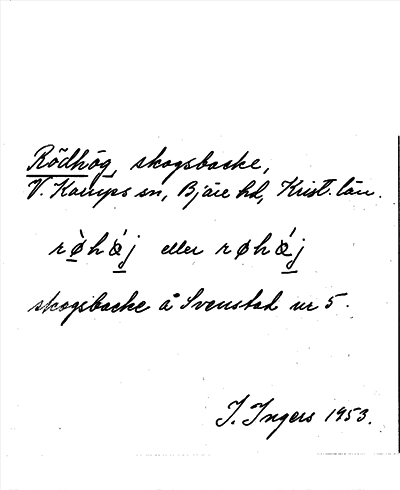 Rödhög, skogsbacke,
V. Karups sn, Bjäre hd, Krist. län.
rø̀hǿj eller røhǿj
skogsbacke å Svenstad nr 5.
I. Ingers 1953.